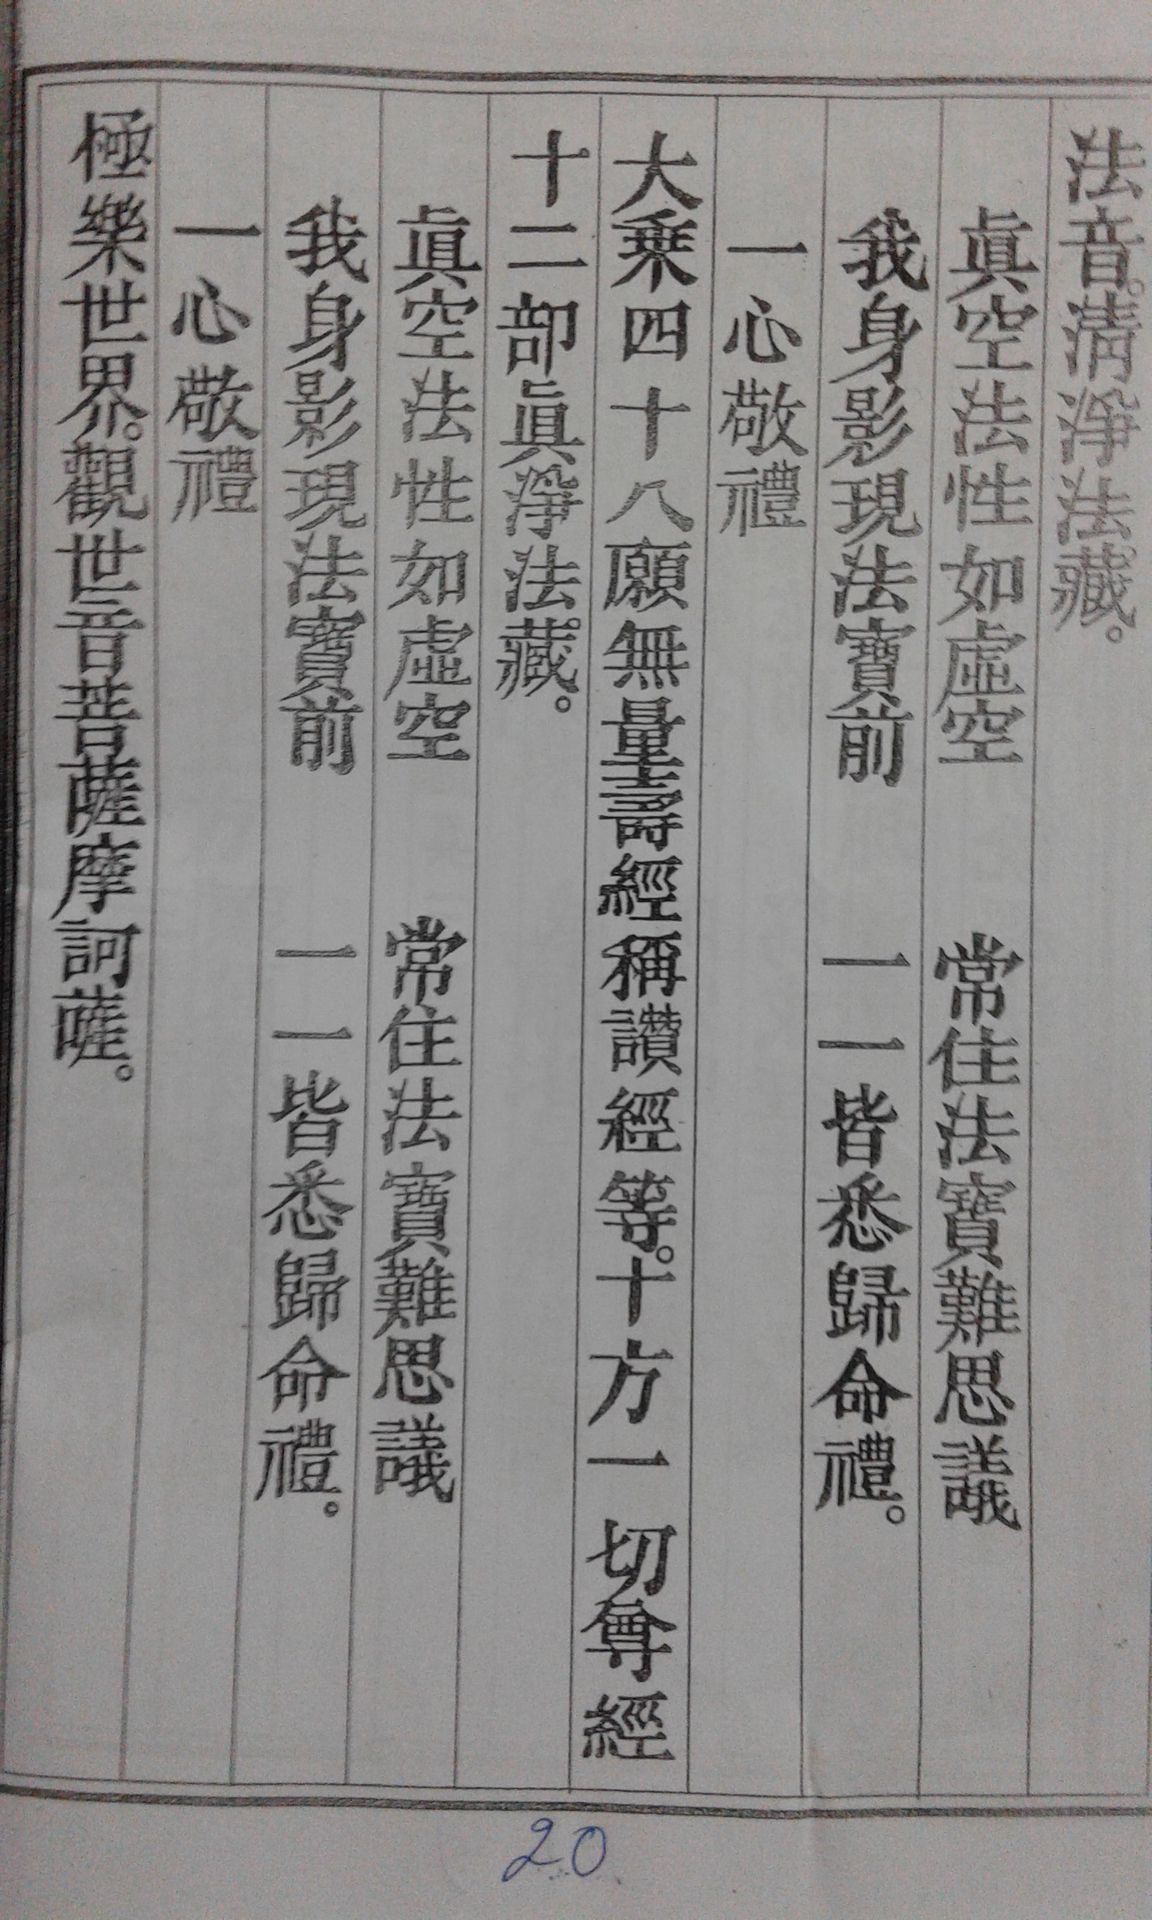 法音。清淨法藏。
眞空法性如虛空 常住法寶難思議
我身影現法寶前 一一皆悉歸命禮。
一心敬禮
大乘四十八願無量壽經稱讚經等。十方一切尊經
十二部眞淨法藏。
眞空法性如虛空 常住法寶難思議
我身影現法寶前 一一皆悉歸命禮。
一心敬禮
極樂世界。觀世音菩薩摩訶薩。
20